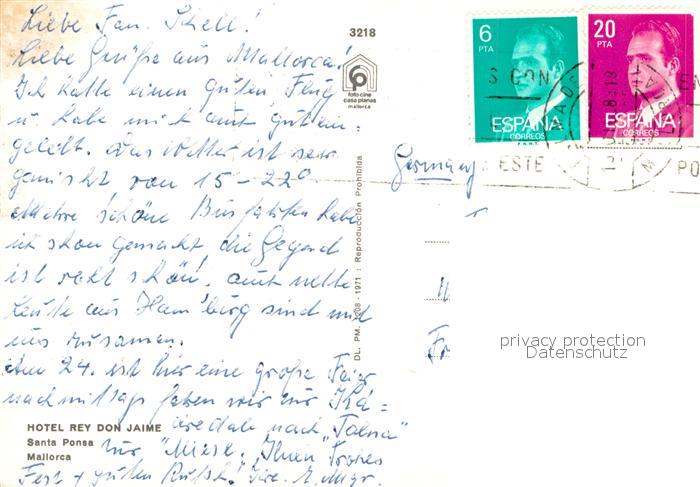 Liebe Fam. Schell!
Liebe Grüße aus Mallorca!
Ich hatte einen guten Flug
u. habe mich
gelebt. Das Wetter ist sehr
gemischt von 15-22°
Mehre schöne Busfahrten habe
ich schon gemacht, die Gegend
ist recht schön, nette
Leute aus Hamburg sind mit
uns zusamen.
Am 24. ist hier eine große Feier
nachmittags fahren wir zur Ka=
tedale nach "Palma"
zur "Messe. Ihnen Frohes
Fest + guten Rutsch!
HOTEL REY DON JAIME
Santa Ponsa
Mallorca
3218
foto-cine
casa planas
mallorca
DL. PM. 1208 - 1971 : Reproducción Prohibida
6
PTA
ESPAÑA
CORREOS
F.N.M.T.
20
PTA
ESPAÑA
CORREOS
S CON
ESTE
PO
Germany
privacy protection
Datenschutz